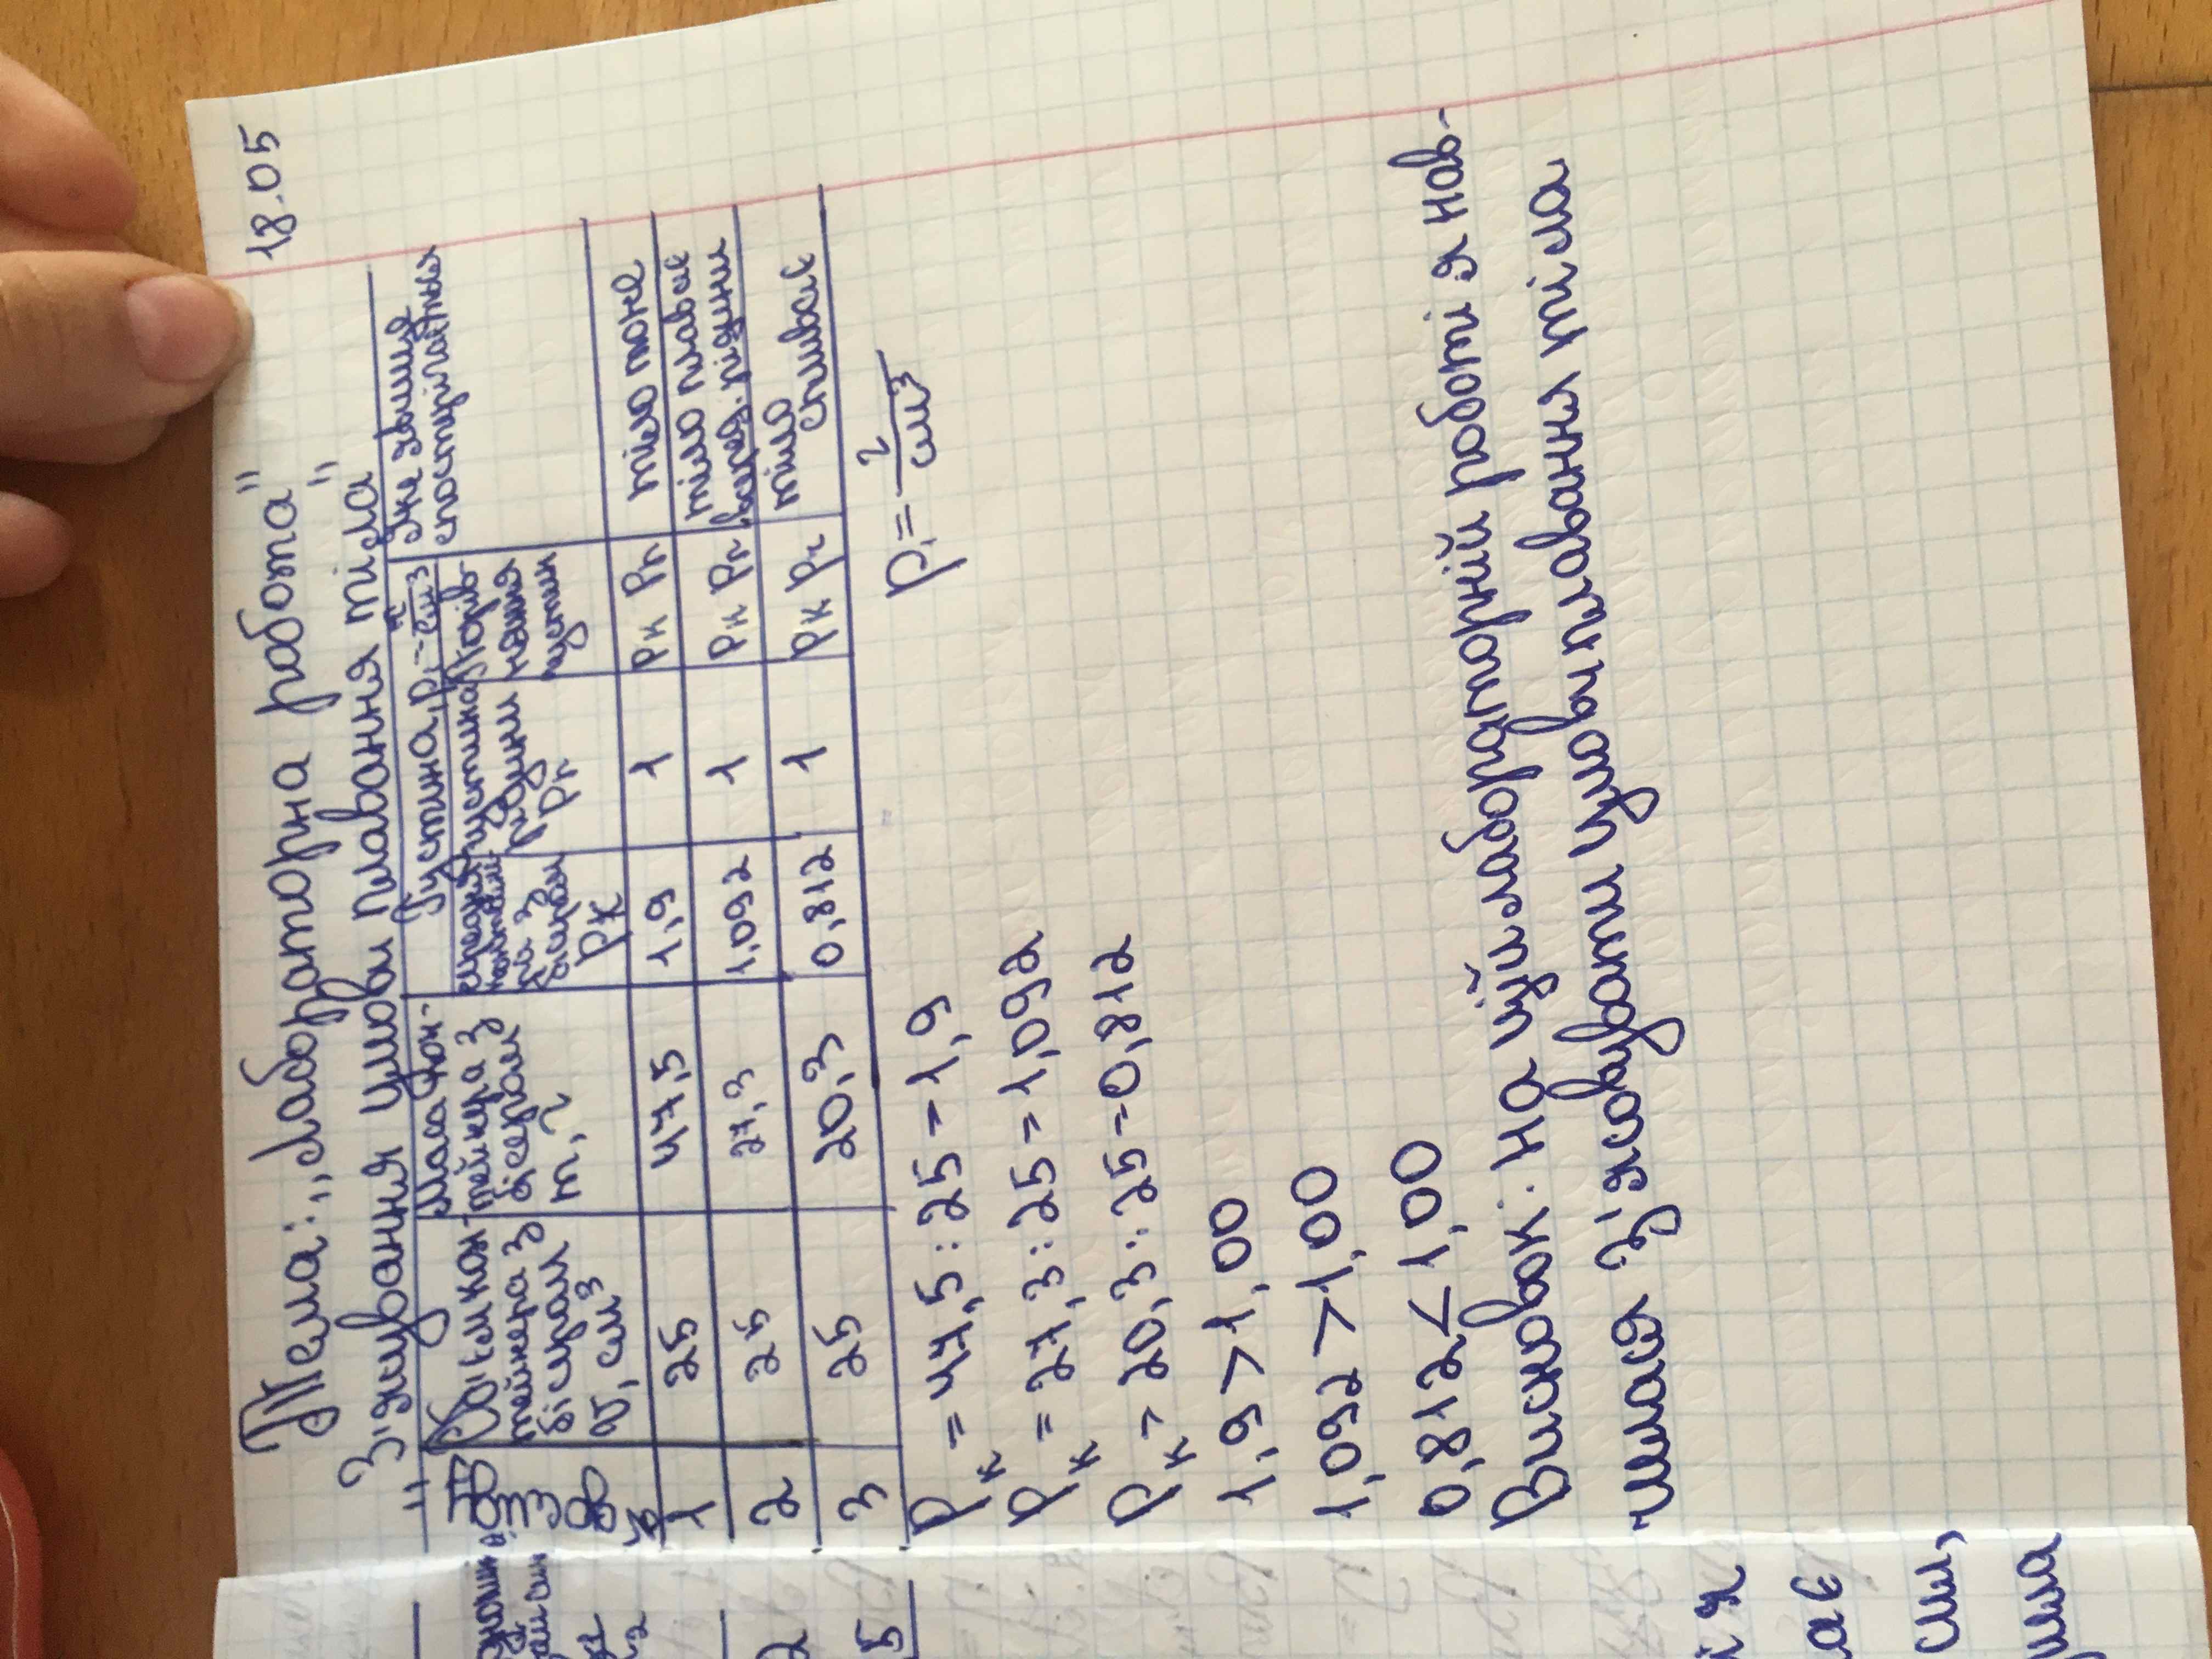 18.05
Тема: „Лабораторна работа"
"З'ясування умови плавання тіла"
Об'єм кон-
тейнера з
бісером
V, см³
Маса кон-
тейнера з
бісером
m, г
Густина, ρ, г/см³
середня
контейне-
ра з
бісером
ρк
густина
рідини
ρр
порів-
няння
густин
Яке явище
спостерігається
1 25 47,5 1,9 1 ρк ρр тіло тоне
2 25 27,3 1,092 1 ρк ρр тіло плаває
всеред. рідини
3 25 20,3 0,812 1 ρк ρр тіло
спливає
ρк = 47,5 : 25 = 1,9
ρ = г/см³
ρк = 27,3 : 25 = 1,092
ρк = 20,3 : 25 = 0,812
1,9 > 1,00
1,092 > 1,00
0,812 < 1,00
Висновок: на цій лабораторній роботі я нав-
чилася з'ясовувати умови плавання тіла